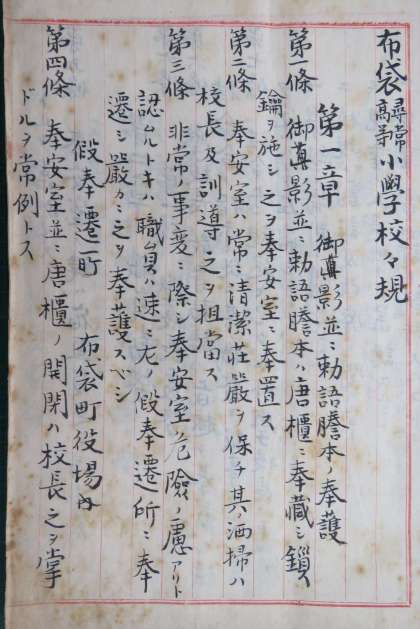 布袋尋常高等小學校々規
第一章 御真影並ニ勅語謄本ノ奉護
第一條 御真影並ニ勅語謄本ハ唐櫃ニ奉藏シ鎖
鑰ヲ施シ之ヲ奉安室ニ奉置ス
第二條 奉安室ハ常ニ清潔莊嚴ヲ保チ其ノ洒掃ハ
校長及訓導之ヲ担當ス
第三條 非常ノ事変ニ際シ奉安室ノ危險ノ慮アリト
認ムルトキハ職員ハ速ニ左ノ假奉遷所ニ奉
遷シ嚴カニ之ヲ奉護スベシ
假奉遷所 布袋町役場内
第四條 奉安室並ニ唐櫃ノ開閉ハ校長之ヲ掌
ドルヲ常例トス